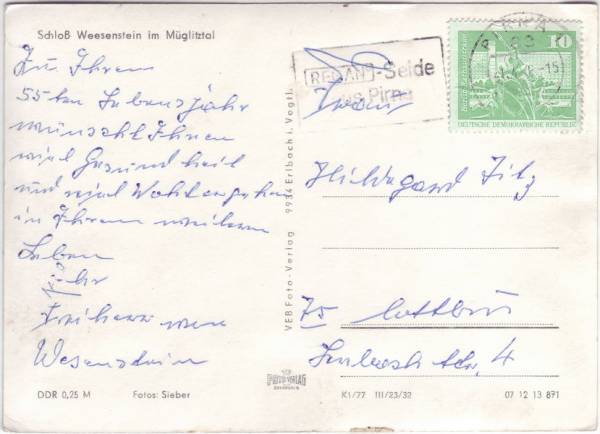 Schloß Weesenstein im Müglitztal
Zu Ihrem
55ten Lebensjahr
wünscht Ihnen
viel Gesundheit
und viel Wohlergehen
in Ihrem weiteren
Leben
Ihr
Freiherr von
Wesenstein
DDR 0,25 M
Fotos: Sieber
VEB Foto-Verlag 9934 Erlbach i. Vogtl.
REGAN -Seide
aus Pirna
PIRNA
83
10
DEUTSCHE DEMOKRATISCHE REPUBLIK
Frau
Hildegard
75 Cottbus
4
FOTO-VERLAG
K1/77 III/23/32
07 12 13 871